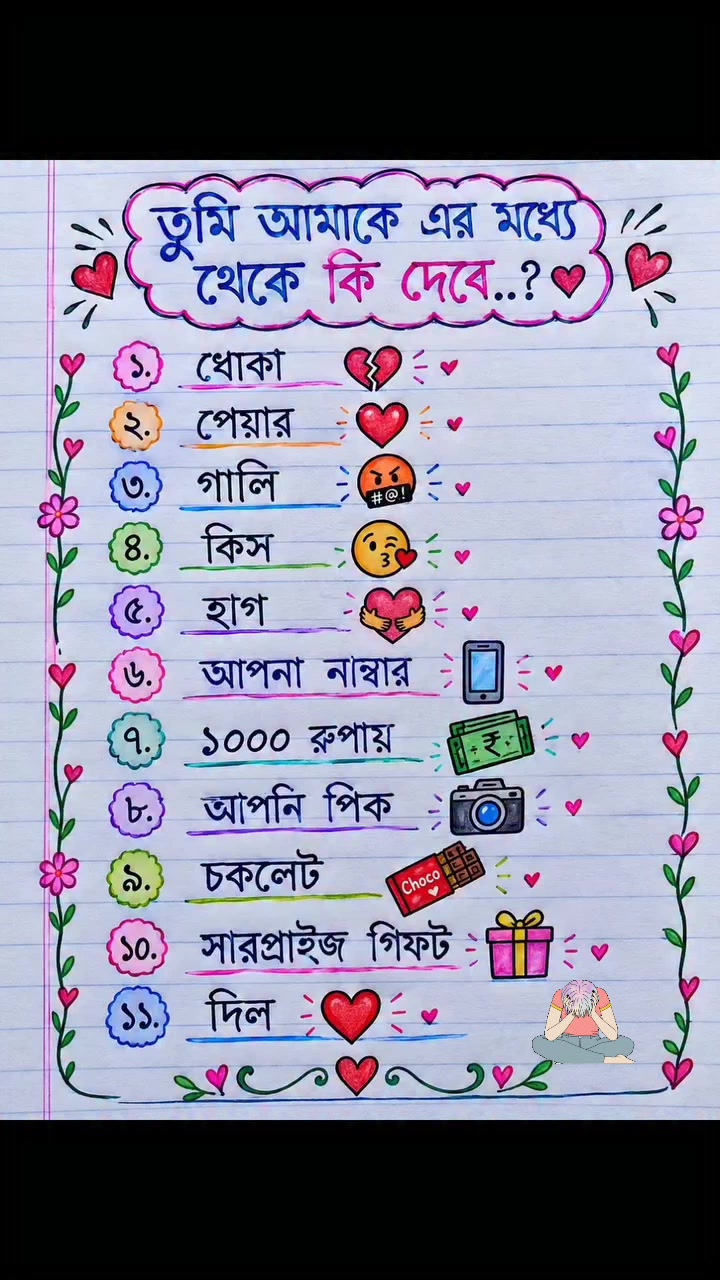 তুমি আমাকে এর মধ্যে
থেকে কি দেবে..?
১. ধোকা
২. পেয়ার
৩. গালি #@!
৪. কিস
৫. হাগ
৬. আপনা নাম্বার
৭. ১০০০ রুপায় ₹
৮. আপনি পিক
৯. চকলেট Choco
১০. সারপ্রাইজ গিফট
১১. দিল